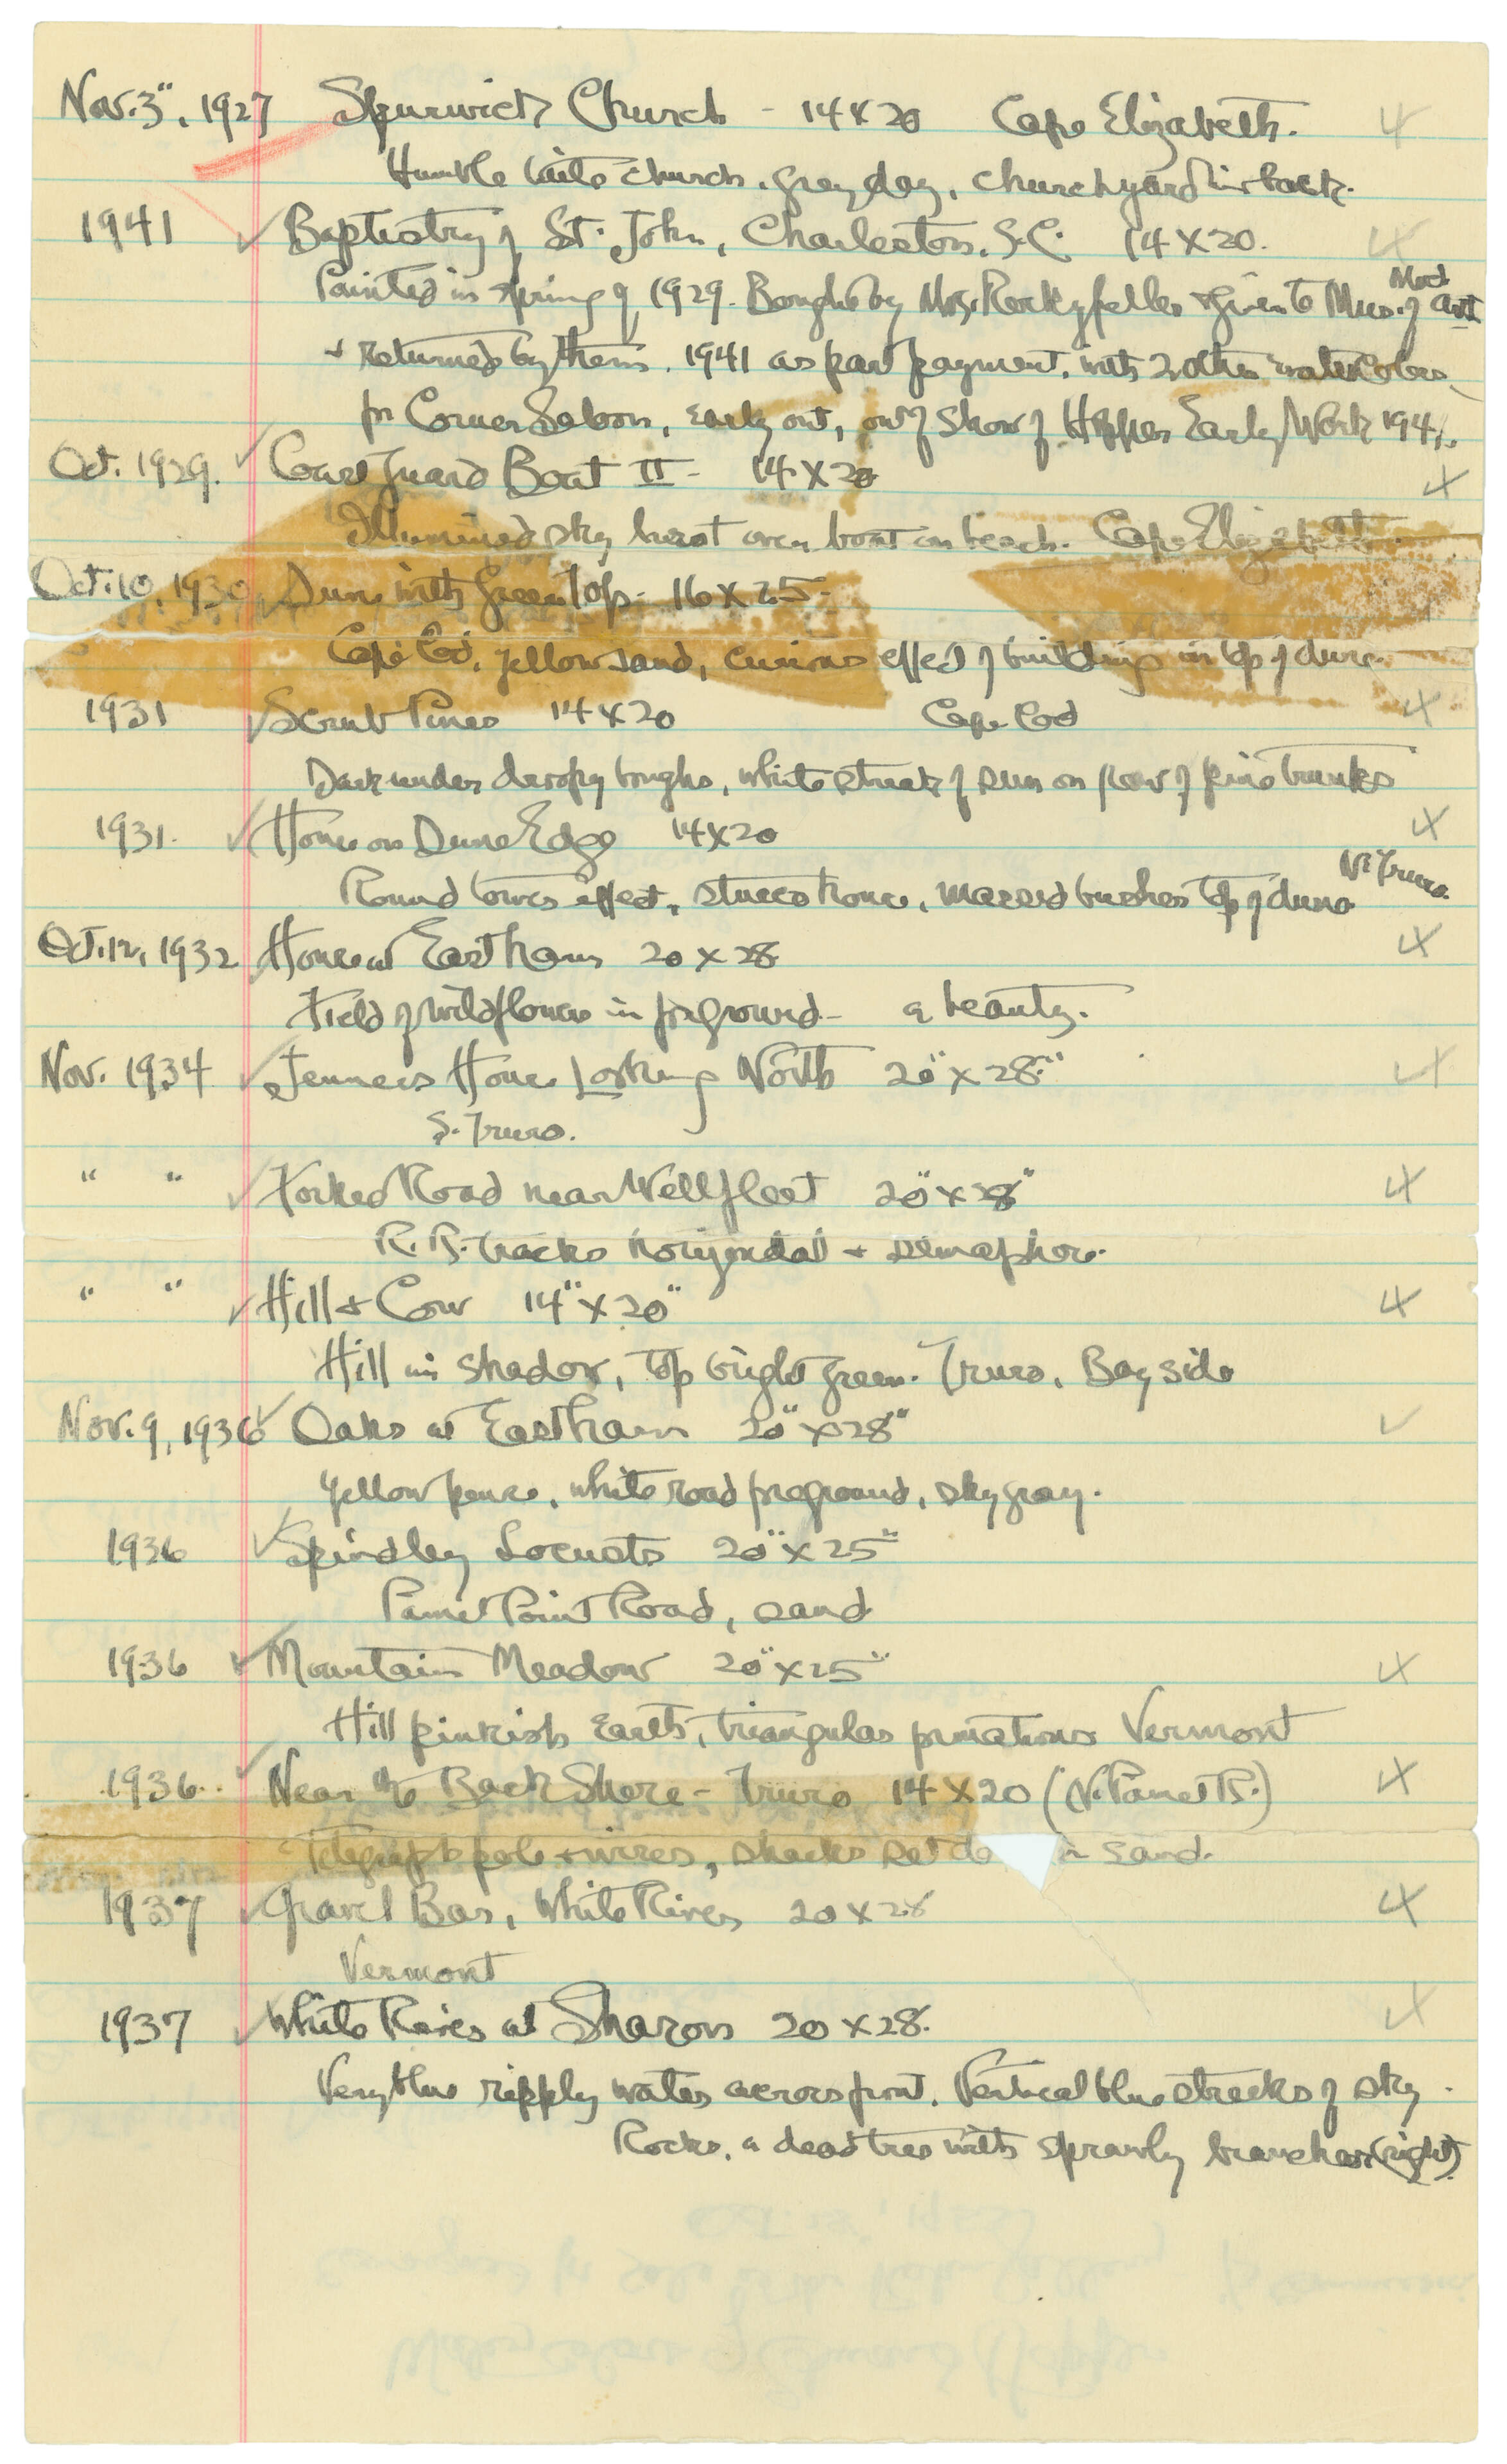 Nov. 3", 1927 Spurwich Church - 14 x 20 Cape Elizabeth. 4
Humble white church, grey day, churchyard in back.
1941 ✓ Baptistry of St. John, Charleston, S.C. 14 x 20. 4
Painted in spring of 1929. Bought by Mrs. Rockyfeller & given to Mus. of Mod Art
+ returned by them. 1941 as part payment, with 2 other water colors
for Corner Saloon, early out, out of show of Hopper Early Work 1941.
Oct. 1929. ✓ Coast Guard Boat II - 14 x 20 4
Illumined sky burst over boat on beach. Cape Elizabeth.
Oct. 10, 1930 ✓ Dune with Green Top - 16 x 25 -
Cape Cod, yellow sand, curious effect of buildings in top of dune.
1931 ✓ Scrub Pines 14 x 20 Cape Cod 4
Dark under droopy boughs, white streak of sun on row of pine trunks
1931. ✓ House on Dune Edge 14 x 20 4
Round tower effect, stucco house, massed bushes top of dune N. Truro.
Oct. 12, 1932 ✓ House at Eastham 20 x 28 4
Field of wildflowers in foreground - a beauty.
Nov. 1934 ✓ Jenness House Looking North 20" x 28" 4
S. Truro.
" " ✓ Forked Road near Wellfleet 20" x 28" 4
R. R. tracks horizondall + semaphore.
" " ✓ Hill + Cow 14" x 20" 4
Hill in shadow, top bright green. Truro, Bay side
Nov. 9, 1936 ✓ Oaks at Eastham 20" x 28" ✓
Yellow fence, white road foreground, sky gray.
1936 ✓ Spindley Locusts 20" x 25"
Pamet Point Road, sand
1936 ✓ Mountain Meadow 20" x 25" 4
Hill pinkish earth, triangular formations Vermont
1936 ✓ Near the Back Shore - Truro 14 x 20 (N. Pamet R.) 4
Telegraph pole + wires, shacks set do n sand.
1937 ✓ Gravel Bar, White River 20 x 28 4
Vermont
1937 ✓ White River at Sharon 20 x 28. 4
Very blue ripply water across front. Vertical blue streaks of sky.
Rocks, a dead tree with sprawly branches (right).